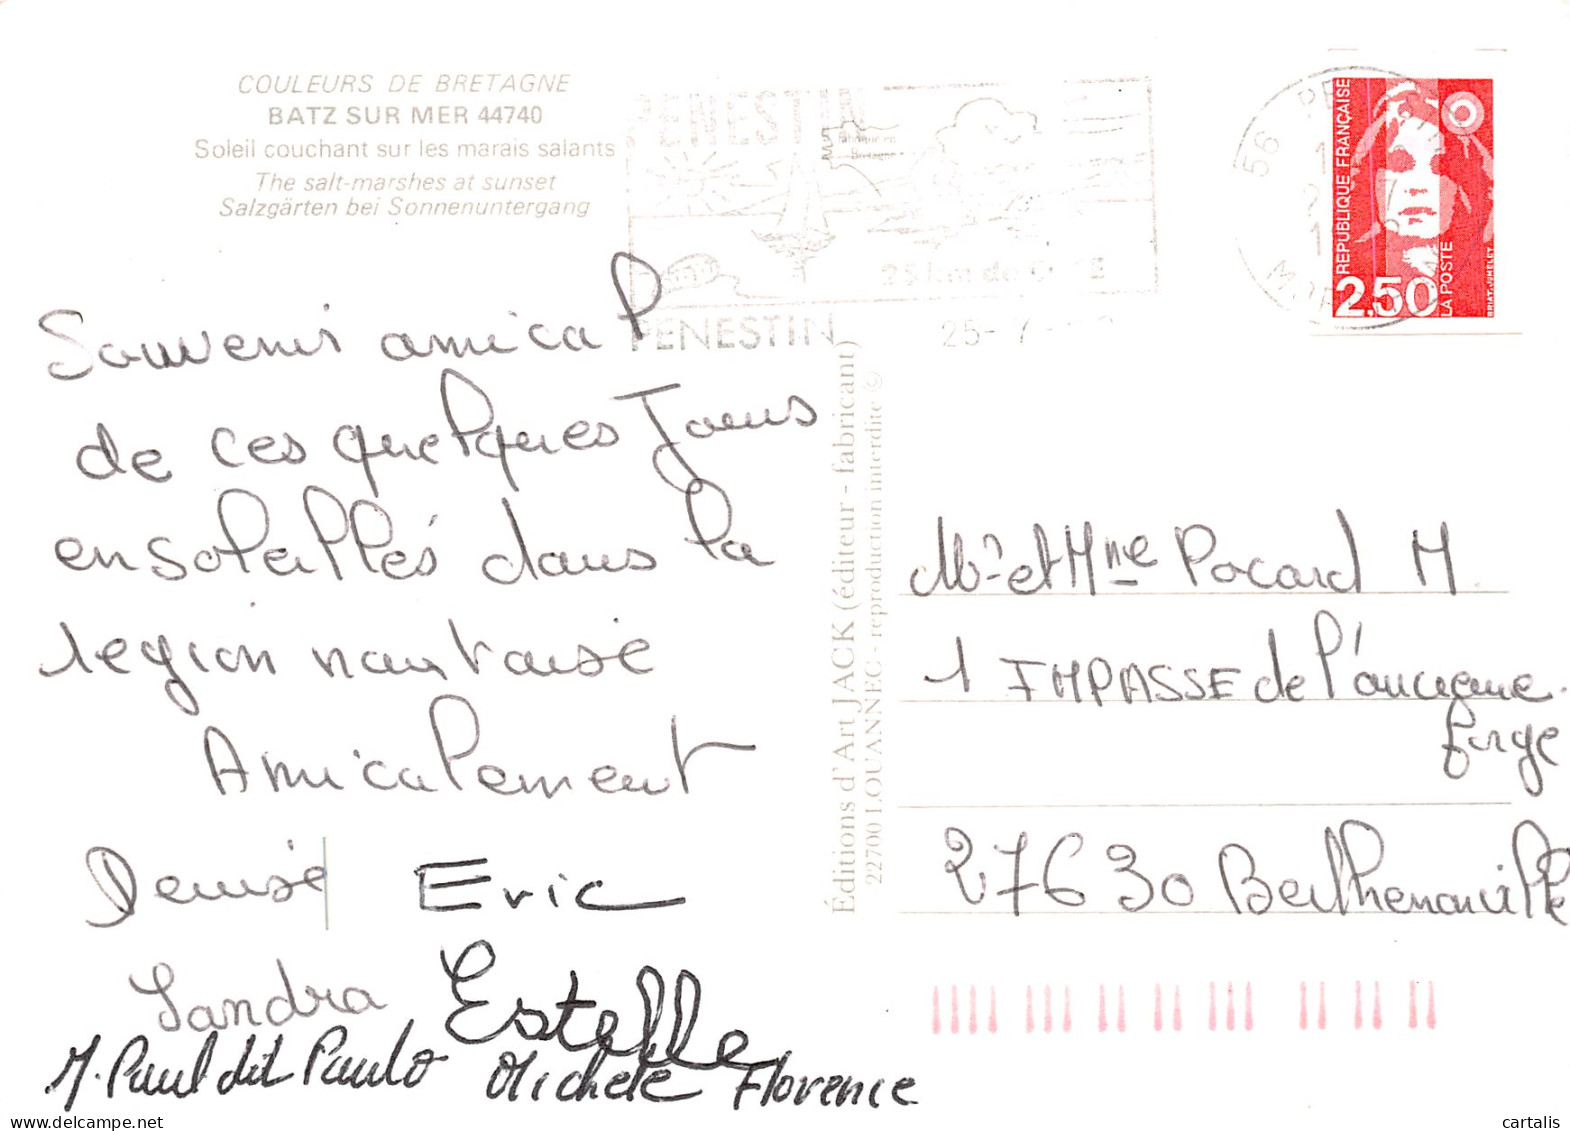 COULEURS DE BRETAGNE
BATZ SUR MER 44740
Soleil couchant sur les marais salants
The salt-marshes at sunset
Salzgärten bei Sonnenuntergang
PENESTIN
Bretagne
25 km de
PENESTIN
25-7-
56
REPUBLIQUE FRANÇAISE
LA POSTE
2,50
BRIAT-JUMELET
Souvenir amical
de ces quelques Jours
ensoleillés dans la
région nantaise
Amicalement
Denise Eric
Sandra Estelle
M. Paul dit Paulo Michele Florence
Éditions d'Art JACK (éditeur - fabricant)
22700 LOUANNEC - reproduction interdite ©
Mr et Mme Pocard M
1 IMPASSE de l'ancienne
forge
27630 Berthenonville
cartalis